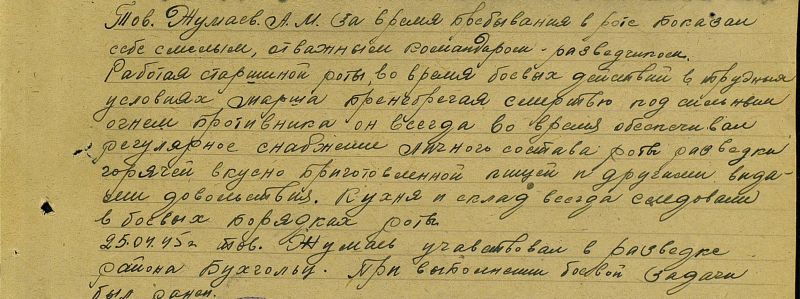 Тов. Жумаев. А.М. За время пребывания в роте показал
себе смелым, отважным командиром-разведчиком.
Работая старшиной роты во время боевых действий в трудных
условиях марша пренебрегая смертью под сильным
огнем противника он всегда во время обеспечивал
регулярное снабжение личного состава роты разведки
горячей вкусно приготовленной пищей и другими вида-
ми довольствия. Кухня и склад всегда следовали
в боевых порядках роты
25.04.45г тов. Жумаев учавствовал в разведке
района Бухгольц. При выполнении боевой задачи
был ранен.